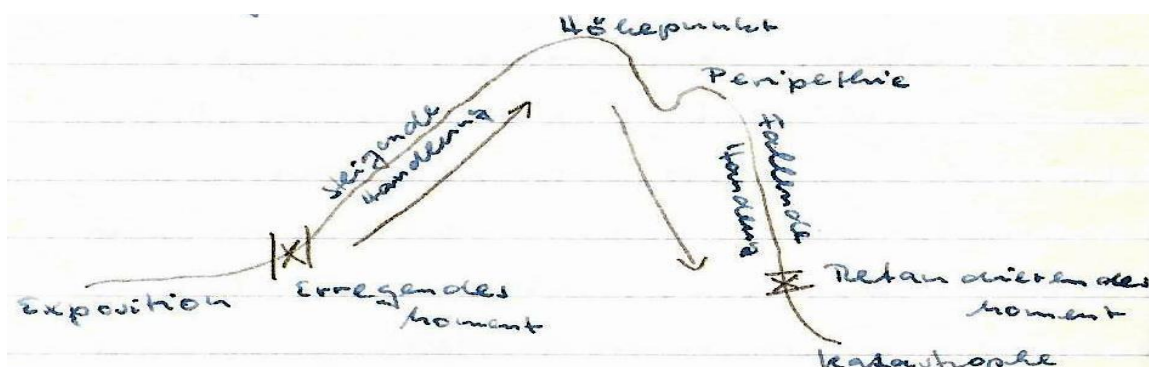 Höhepunkt
Peripethie
steigende
Handlung
Fallende
Handlung
Exposition
Erregendes
Moment
Retardierendes
Moment
Katastrophe